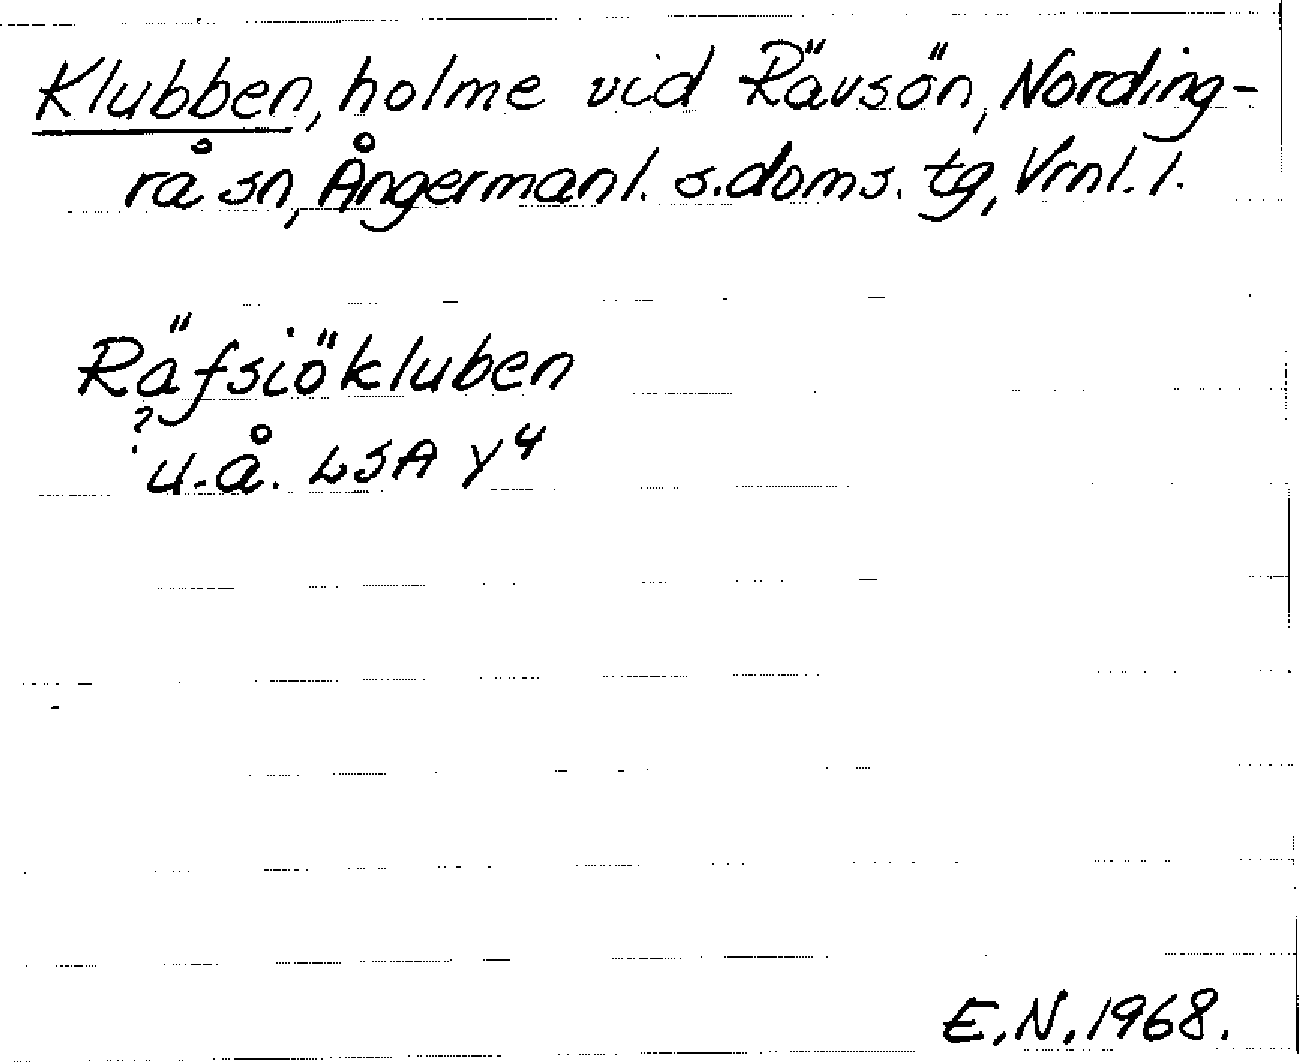 Klubben, holme vid Rävsön, Nording-
rå sn, Ångermanl. s. doms. tg, Vrnl. l.
Räfsiökluben
?
u.å. LSA Y⁴
E.N. 1968.